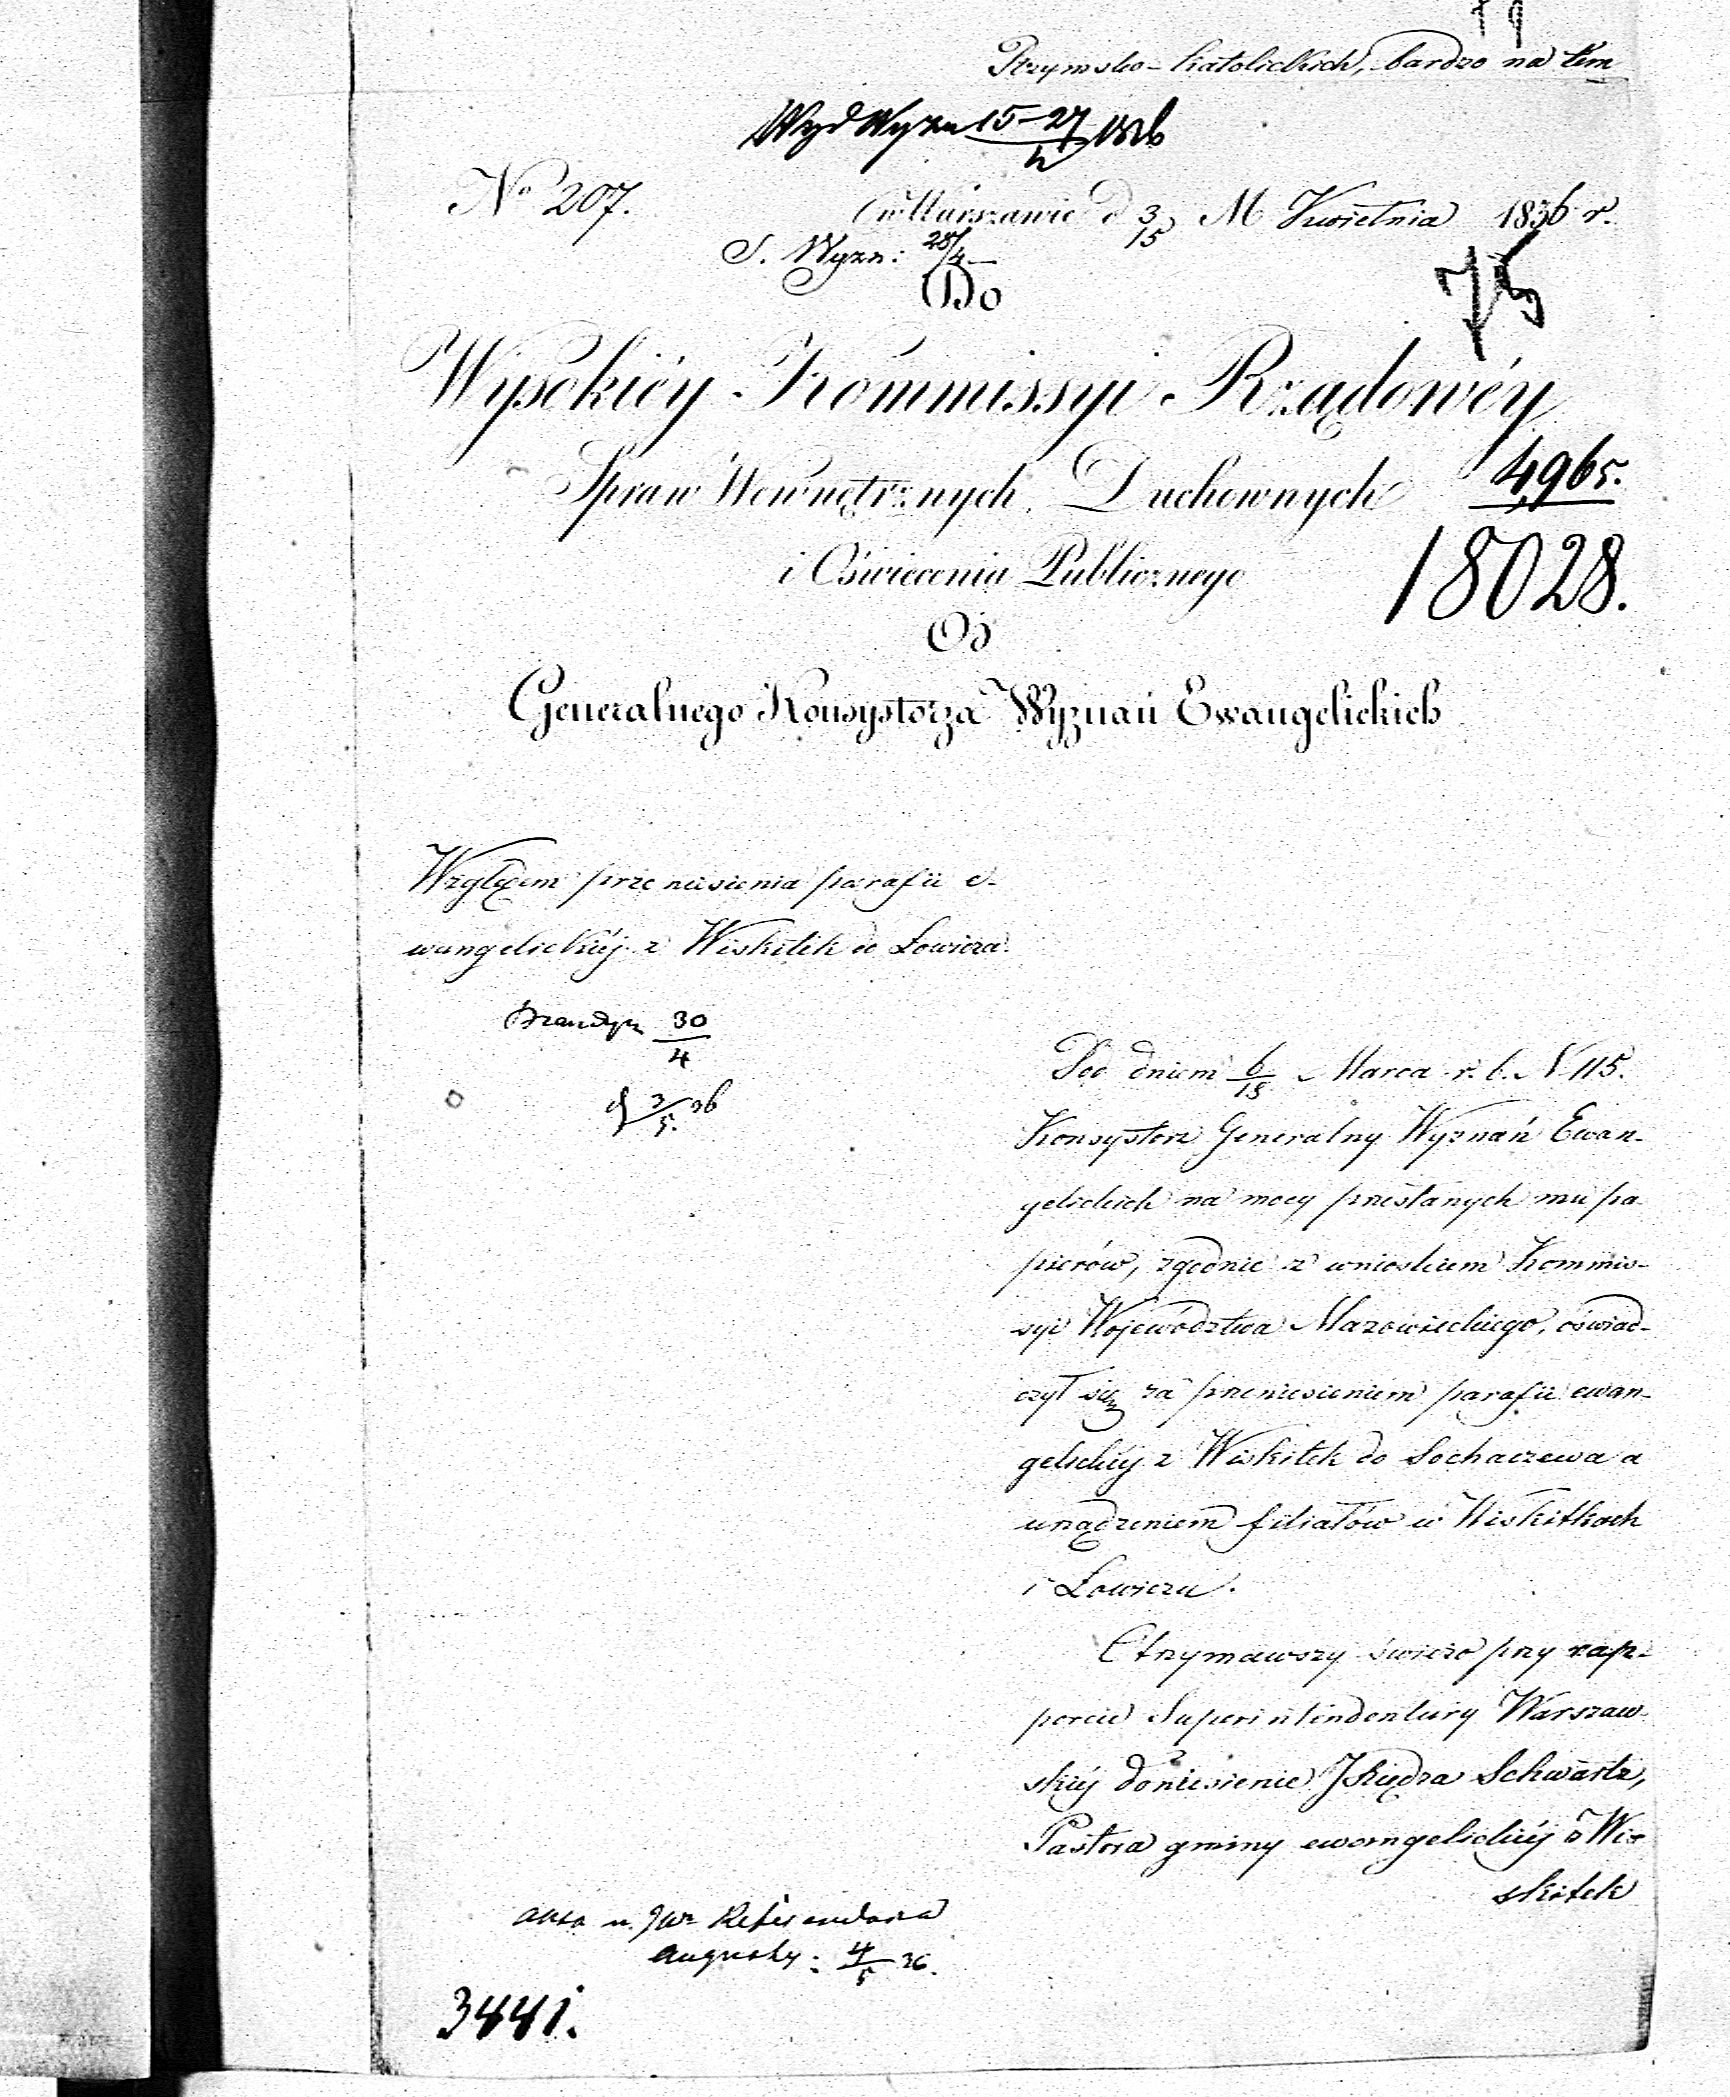 Rzymsko-Katolickich, bardzo na tem
Wyd Wyzn 15-27/4 1836
No 207.
w Warszawie d 3/15 M Kwietnia 1836 r.
S. Wyzn: 28/4
75
Do
Wysokiéy Kommissyi Rządowéy
Spraw Wewnętrznych, Duchownych
4965.
i Oświecenia Publicznego
18028.
Od
Generalnego Konsystorza Wyznań Ewangelickich
Względem przeniesienia parafii e-
wangelickiéj z Wiskitek do Łowicza.
30/4
3/5 36
Pod dniem 6/15 Marca r. b. N 115.
Konsystorz Generalny Wyznań Ewan-
gelickich na mocy przesłanych mu pa
pierów, zgodnie z wnioskiem Kommis-
syi Województwa Mazowieckiego, oświad-
czył się za przeniesieniem parafii ewan-
gelickiéj z Wiskitek do Sochaczewa a
urządzeniem filiałów w Wiskitkach
i Łowiczu.
Otrzymawszy świeżo przy rap-
porcie Superintendentury Warszaw-
skiéj doniesienie JKsiędza Schwartz,
Pastora gminy ewangelickiéj z Wi-
skitek
akta u JW Referendarza
4/5 36.
3441.